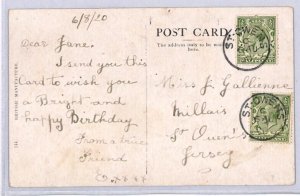 6/8/20
POST CARD
The address only to be written here
Dear Jane.
I send you this
Card to wish you
a Bright and
happy Birthday
From a true
Friend
Mrs J Gallienne
Millais
St Ouen's
Jersey
ST. OUENS
ST. OUENS
BRITISH MANUFACTURE